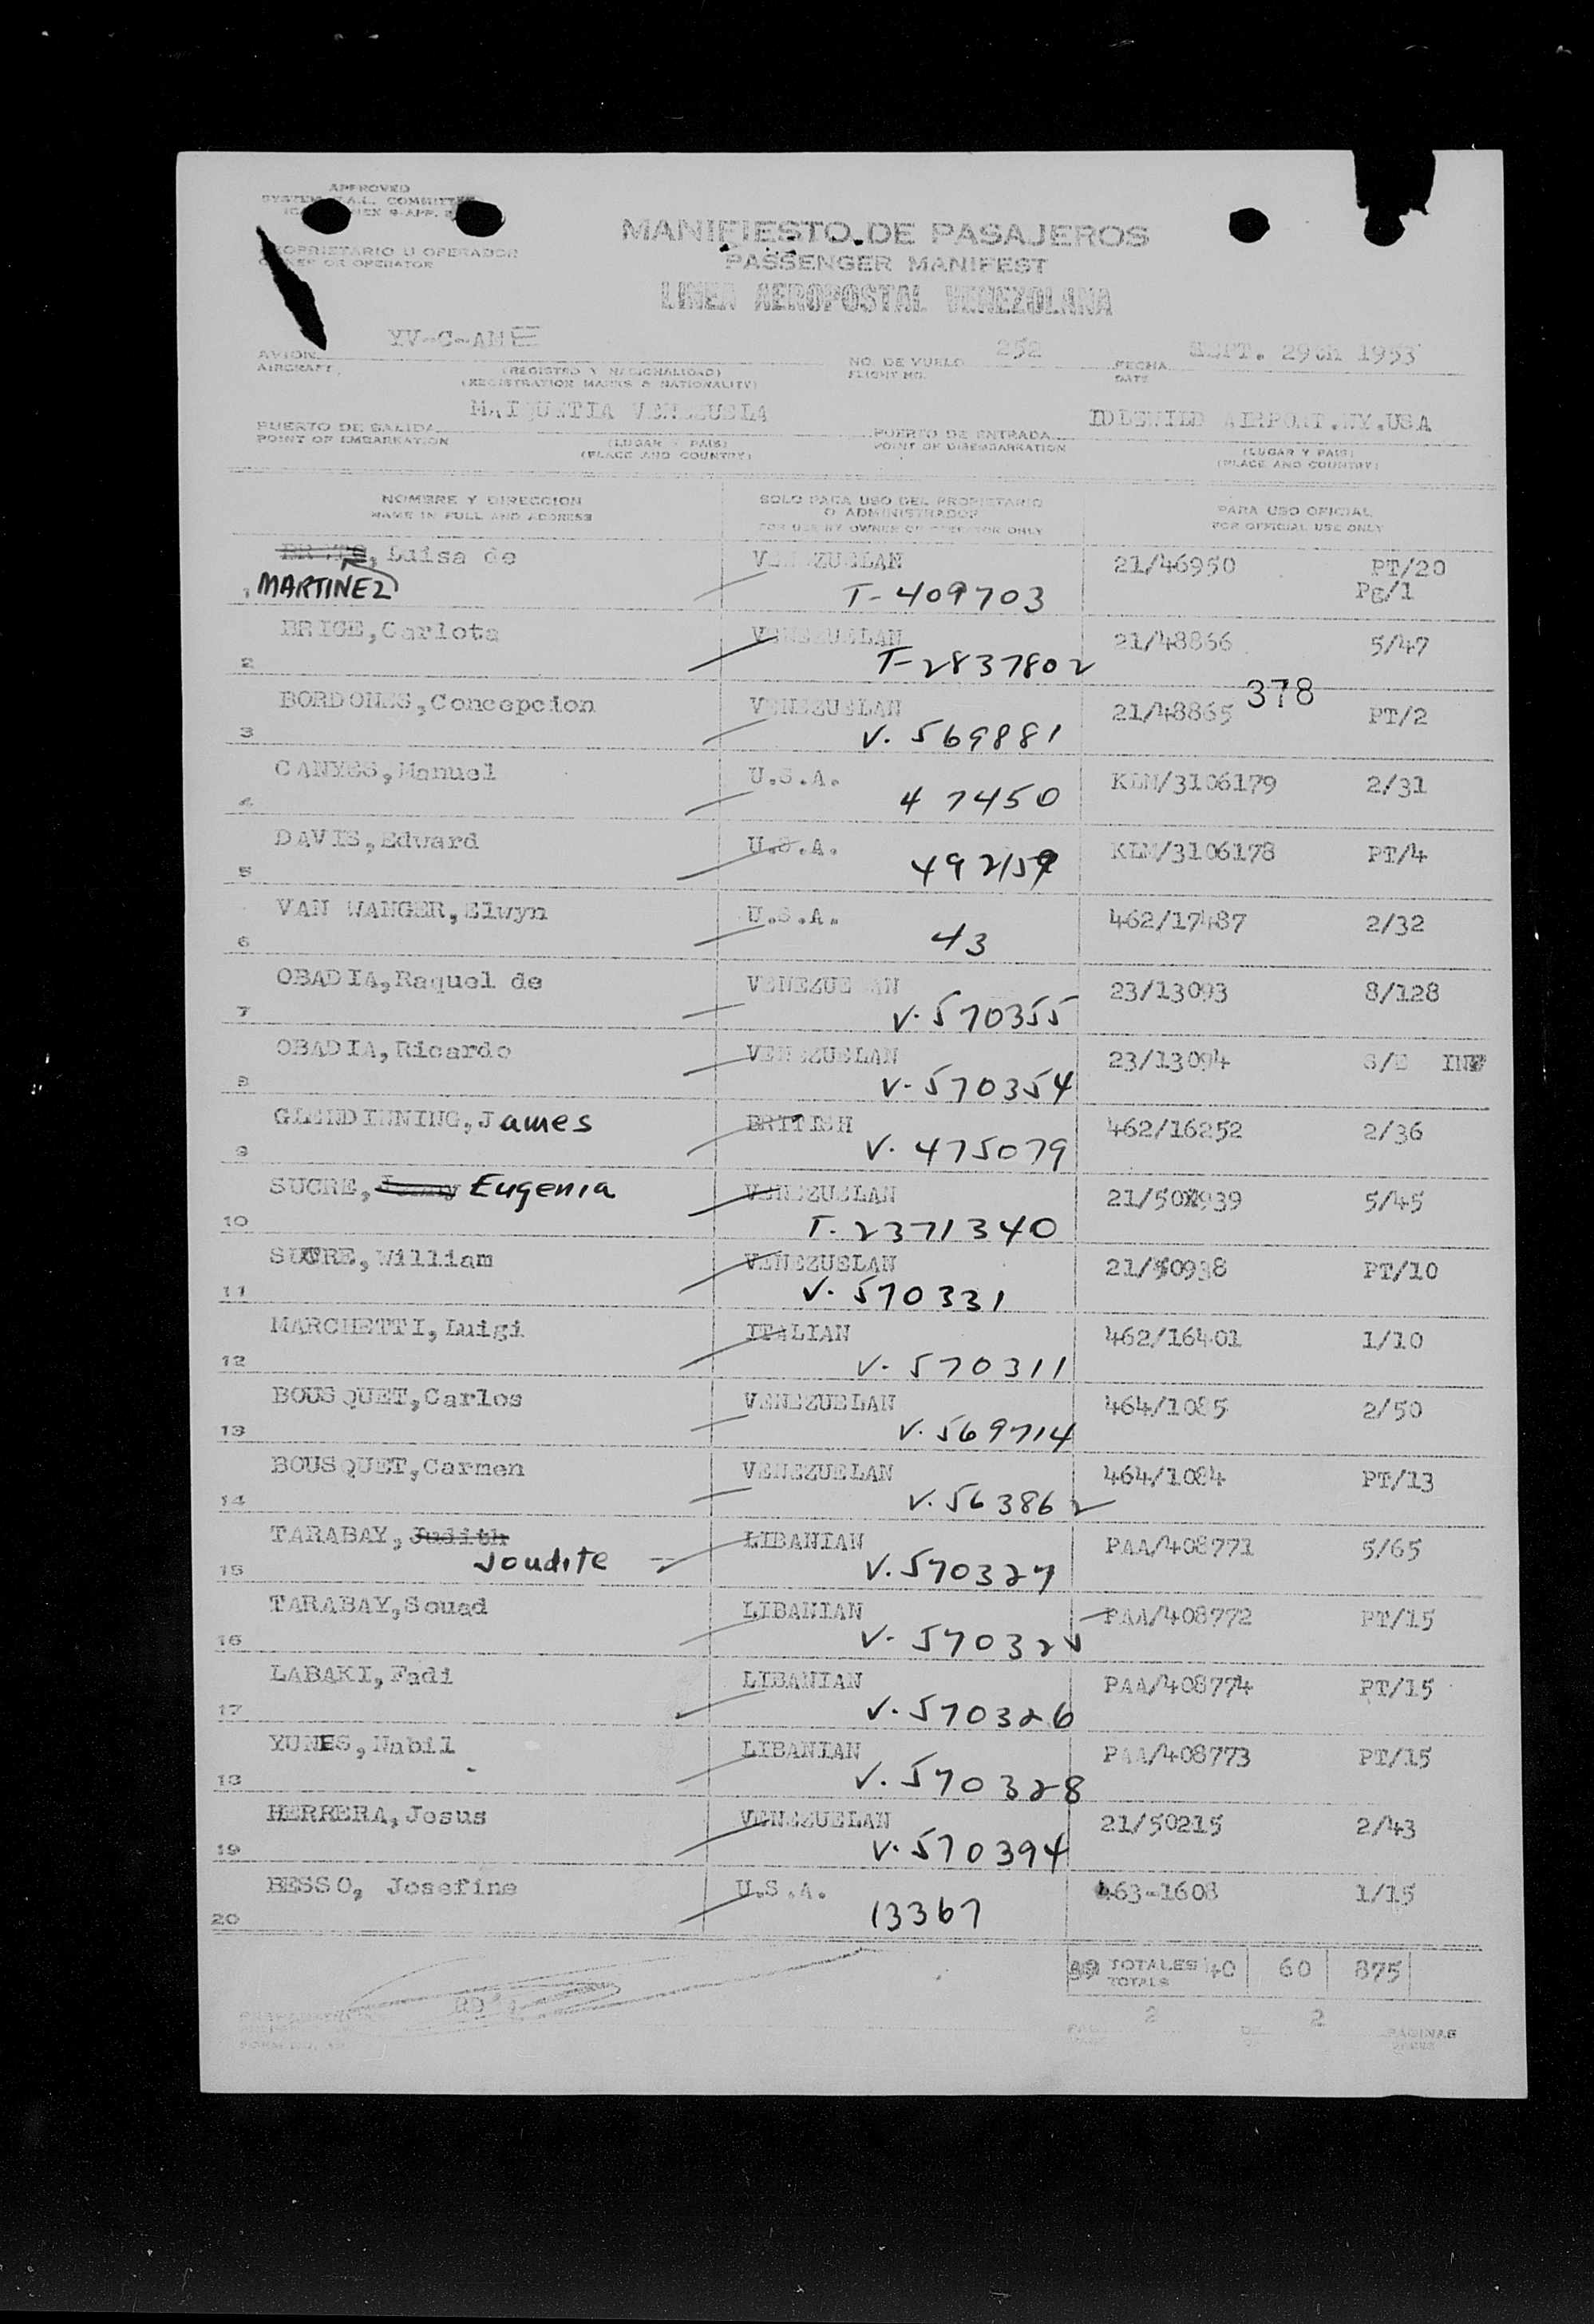 APPROVED
COMMITTEE
PROPRIETARIO U OPERADOR
OWNER OR OPERATOR
MANIFIESTO DE PASAJEROS
PASSENGER MANIFEST
LINEA AEROPOSTAL VENEZOLANA
AVION YV-C-AME NO. DE VUELO 252 FECHA SEPT. 29th 1953
AIRCRAFT (REGISTRO Y NACIONALIDAD) FLIGHT NO. DATE
(REGISTRATION MARKS & NATIONALITY)
PUERTO DE SALIDA MAIQUETIA VENEZUELA PUERTO DE ENTRADA IDLEWILD AIRPORT.NY.USA
POINT OF EMBARKATION (LUGAR Y PAIS) POINT OF DISEMBARKATION (LUGAR Y PAIS)
(PLACE AND COUNTRY) (PLACE AND COUNTRY)
NOMBRE Y DIRECCION SOLO PARA USO DEL PROPIETARIO PARA USO OFICIAL
NAME IN FULL AND ADDRESS O ADMINISTRADOR FOR OFFICIAL USE ONLY
FOR USE BY OWNER OR OPERATOR ONLY
, Luisa de VENEZUELAN 21/46950 PT/20
MARTINEZ T-409703 Pg/1
BRICE, Carlota VENEZUELAN 21/48866 5/47
2 T-2837802
378
BORDONES, Concepcion VENEZUELAN 21/48865 PT/2
3 V. 569881
CANYES, Manuel U.S.A. KLM/3106179 2/31
4 47450
DAVIS, Edward U.S.A. KLM/3106178 PT/4
5 492159
VAN WANGER, Elwyn U.S.A. 462/17487 2/32
6 43
OBADIA, Raquel de VENEZUELAN 23/13093 8/128
7 V. 570355
OBADIA, Ricardo VENEZUELAN 23/13094 S/E INF
8 V- 570354
GLENDINNING, James BRITISH 462/16252 2/36
9 V. 475079
SUCRE, Eugenia VENEZUELAN 21/50939 5/45
10 T. 2371340
SUCRE, William VENEZUELAN 21/50938 PT/10
11 V. 570331
MARCHETTI, Luigi ITALIAN 462/16401 1/10
12 V- 570311
BOUSQUET, Carlos VENEZUELAN 464/1085 2/50
13 V. 569714
BOUSQUET, Carmen VENEZUELAN 464/1084 PT/13
14 V. 563862
TARABAY, Judith LIBANIAN PAA/408771 5/65
15 Joudite V. 570327
TARABAY, Souad LIBANIAN PAA/408772 PT/15
16 V- 57032
LABAKI, Fadi LIBANIAN PAA/408774 PT/15
17 V. 570326
YUNES, Nabil LIBANIAN PAA/408773 PT/15
18 V. 570328
HERRERA, Jesus VENEZUELAN 21/50215 2/43
19 V. 570394
BESSO, Josefine U.S.A. 463-1608 1/15
20 13367
39 TOTALES 40 60 875
TOTALS
2 DE 2 PAGINAS